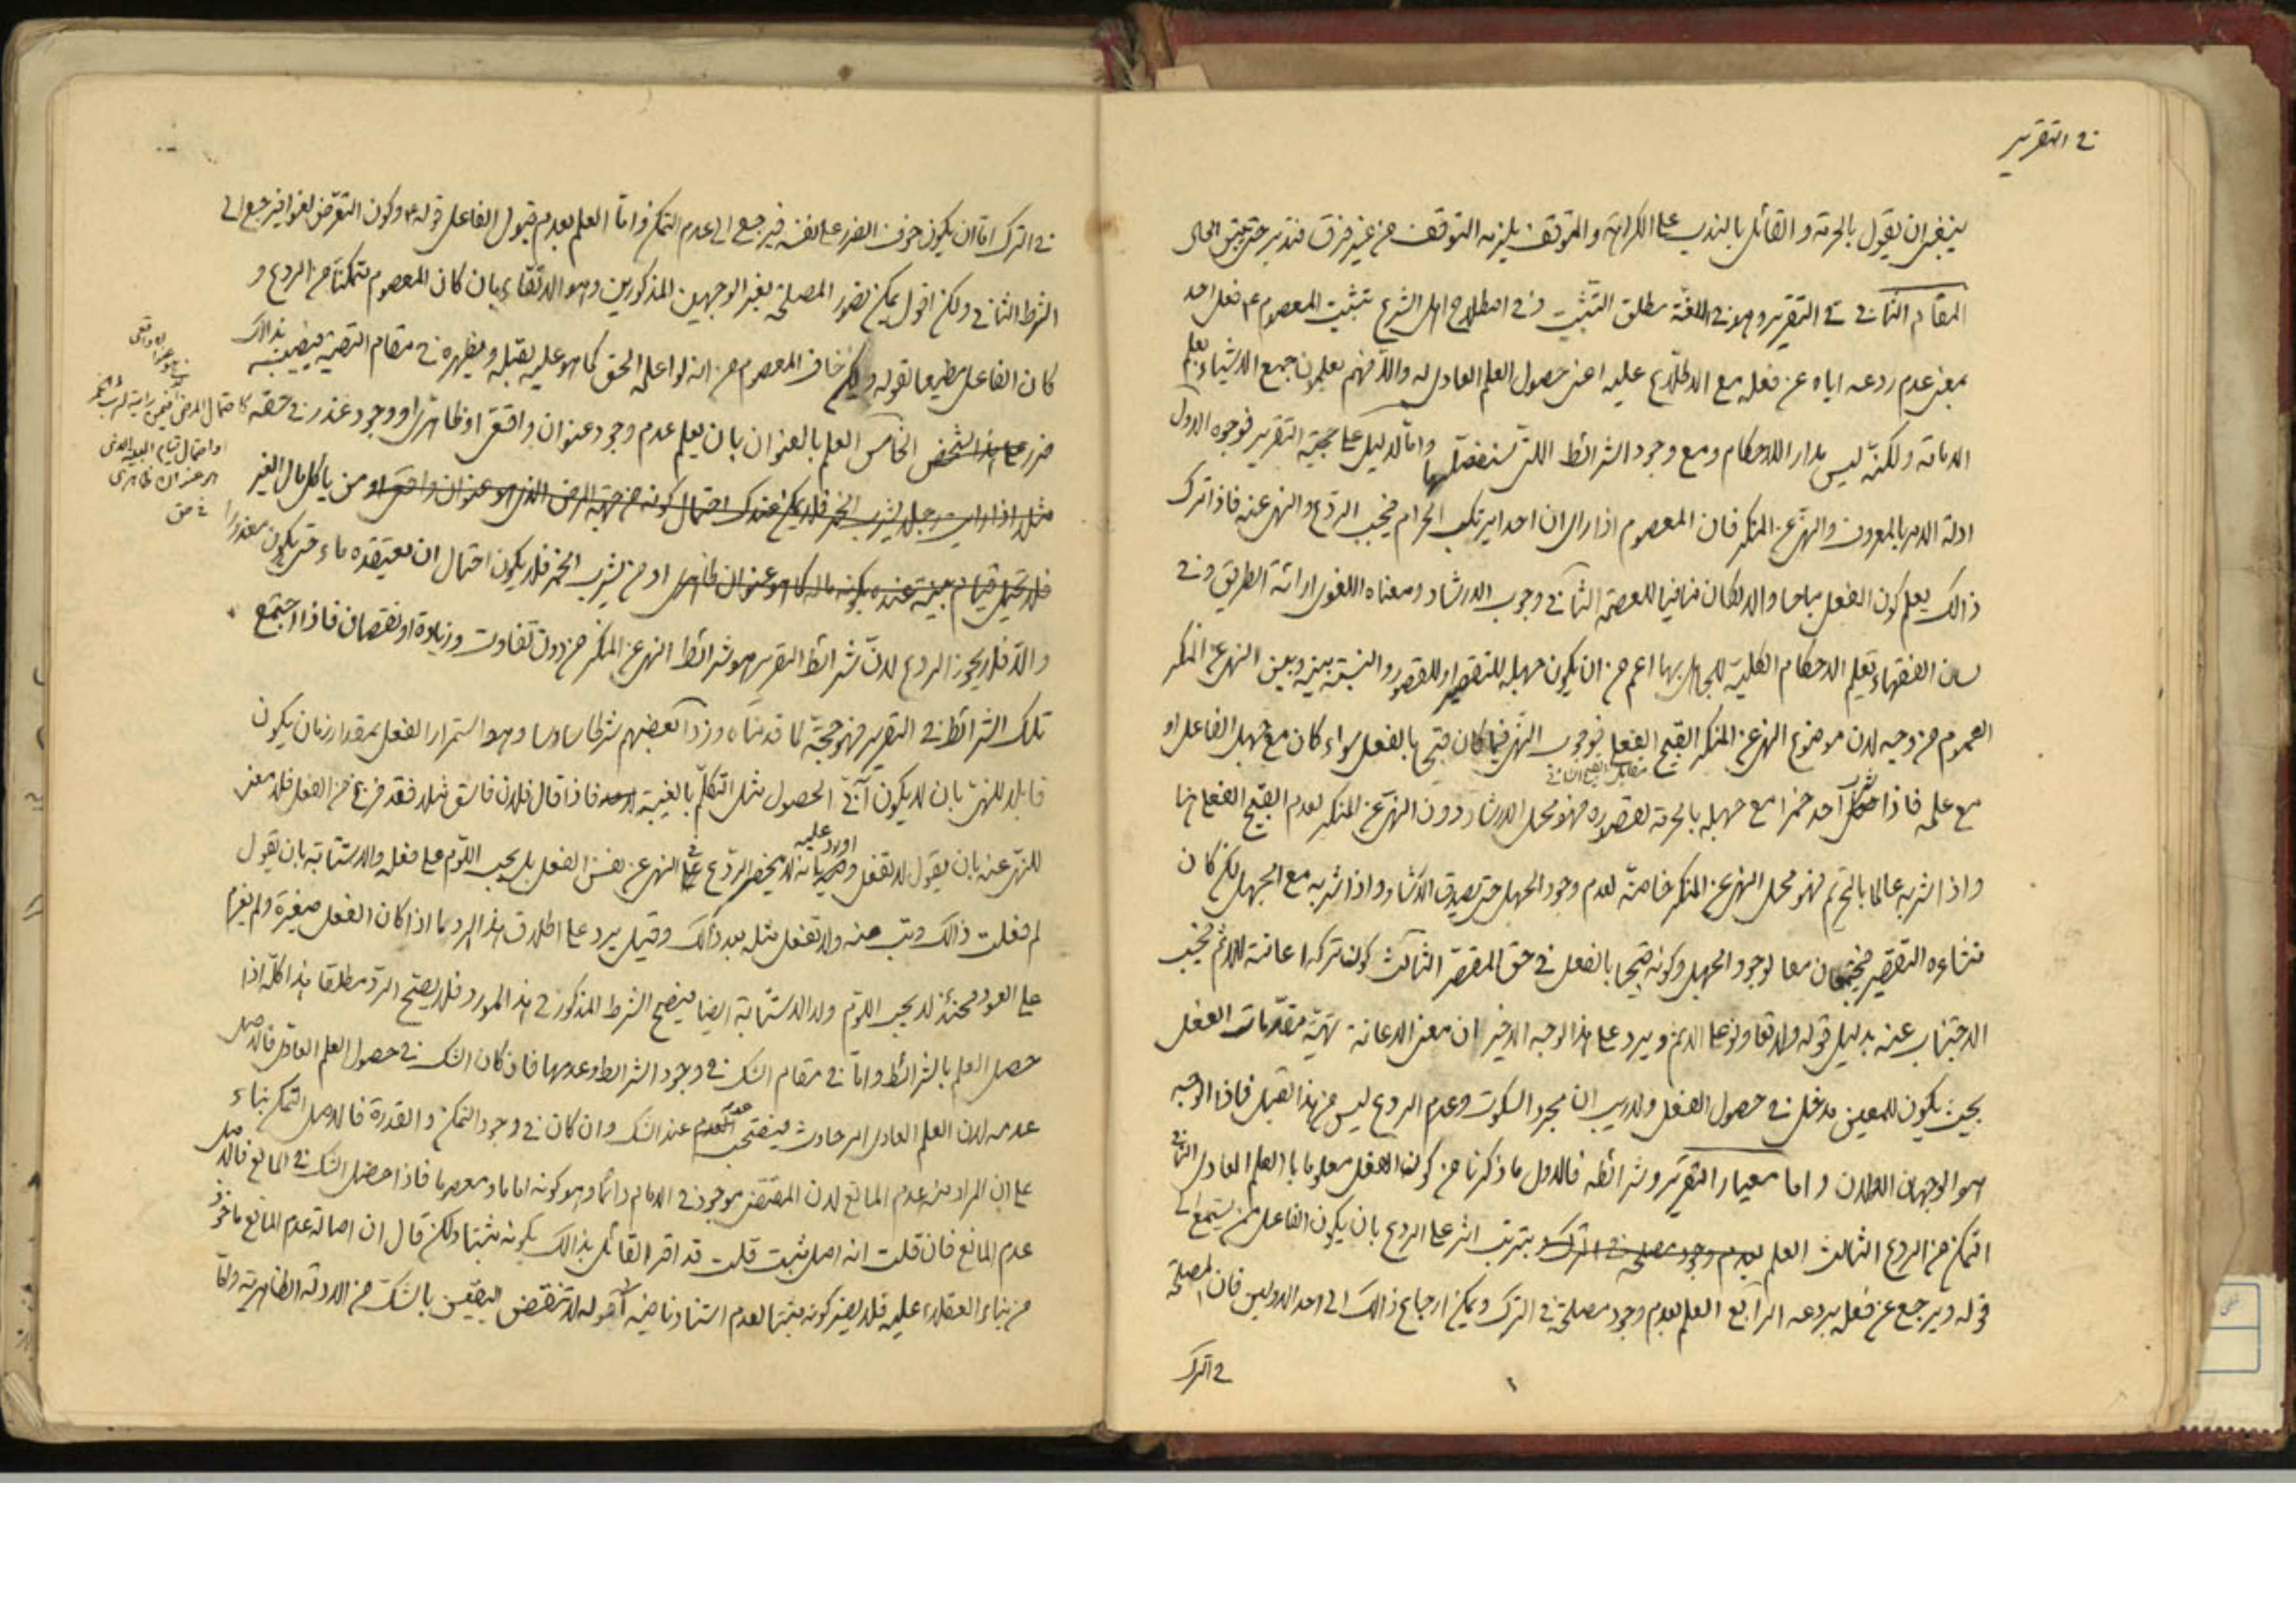 في التقرير
ينبغي ان يقول بالحرمة و القائل بالندب على الكراهة والمتوقف يلزمه التوقف من غير فرق فتدبر حتى يتبين الحال
المقام الثاني في التقرير وهو في اللغة مطلق التثبيت وفي اصطلاح اهل الشرع تثبيت المعصوم ع فعل احد
بمعنى عدم ردعه اياه عن فعله مع الاطلاع عليه اعنى حصول العلم العادى له والا فهم يعلمون جميع الاشياء بعلم
الامامة ولكنه ليس مدار الاحكام ومع وجود الشرائط اللتي سنفصلها واما الدليل على حجية التقرير فوجوه الاول
ادلة الامر بالمعروف والنهى عن المنكر فان المعصوم اذا راى ان احدا يرتكب الحرام فيجب الردع والنهى عنه فاذا ترك
ذالك يعلم كون الفعل مباحا والا لكان منافيا للعصمة الثاني وجوب الارشاد ومعناه اللغوى ارائة الطريق وفي
لسان الفقهاء تعليم الاحكام الكلية للجاهل بها اعم من ان يكون جهله للتقصير او للقصور والنسبة بينه وبين النهى عن المنكر
العموم من وجه لان موضوع النهى عن المنكر القبيح الفعلى فوجوب النهى فيما كان قبيحا بالفعل سواء كان مع جهل الفاعل او
مع علمه فاذا شرب احد خمرا مع جهله بالحرمة لقصوره فهو محل الارشاد دون النهى عن المنكر لعدم القبيح الفعلى هنا
واذا شربه عالما بالتحريم فهو محل النهى عن المنكر خاصة لعدم وجود الجهل حتى يصدق الارشاد واذا شربه مع الجهل لكن كان
منشاءه التقصير فيجتمعان معا لوجود الجهل وكونه قبيحا بالفعل في حق المقصر الثالث كون تركه اعانة للاثم فيجب
الاجتناب عنه بدليل قوله ولا تعاونوا على الاثم ويرد على هذا الوجه الاخير ان معنى الاعانة تهية مقدمات الفعل
بحيث يكون للمعين مدخل في حصول الفعل ولا ريب ان مجرد السكوت وعدم الردع ليس من هذا القبيل فاذا الوجه
هو الوجهان الاولان و اما معيار التقرير وشرائطه فالاول ما ذكرنا من كون الفعل معلوما بالعلم العادى الثاني
التمكن من الردع الثالث العلم بترتب اثر على الردع بان يكون الفاعل ممن يستمع الى
قوله ويرجع عن فعله بردعه الرابع العلم بعدم وجود مصلحة في الترك ويمكن ارجاع ذالك الى احد الاولين فان المصلحة
في الترك
في الترك اما ان يكون خوف الضرر على نفسه فيرجع الى عدم التمكن واما العلم بعدم قبول الفاعل قوله ع وكون التعرض لغوا فيرجع الى
الشرط الثاني ولكن اقول يمكن تصور المصلحة بغير الوجهين المذكورين وهو الاتقاء بان كان المعصوم متمكنا من الردع و
كان الفاعل مطيعا لقوله ولكن خاف المعصوم من انه لو اعلمه الحق كما هو عليه يقبله ويظهره في مقام التقية فيصيبه بذالك
ضرر الخامس العلم بالعنوان بان يعلم عدم وجود عنوان واقعى او ظاهرى او وجود عذر في حقه
من ياكل مال الغير
او من يشرب الخمر فلا يكون احتمال ان يعتقده ماء حتى يكون معذورا
والا فلا يجوز الردع لان شرائط التقرير هو شرائط النهى عن المنكر من دون تفاوت وزيادة او نقصان فاذا اجتمع
تلك الشرائط في التقرير فهو حجة لما قدمناه وزاد بعضهم شرطا سادسا وهو استمرار الفعل بمقدار زمان يكون
قابلا للنهى بان لا يكون آني الحصول مثل التكلم بالغيبة فاذا قال فلان فاسق مثلا فقد فرغ من الفعل فلا معنى
للنهى عنه بان يقول لا تفعل واورد عليه بانه لا ينحصر الردع في النهى عن نفس الفعل بل يجب اللوم على فعله والاستتابة بان يقول
لم فعلت ذالك وتب عنه ولا تفعل مثله بعد ذالك وقيل يرد على اطلاق هذا الرد ما اذا كان الفعل صغيرة ولم يعزم
على العود فحينئذ لا يجب اللوم ولا الاستتابة ايضا فيصح الشرط المذكور في هذا المورد فلا يصح الرد مطلقا هذا كله اذا
حصل العلم بالشرائط واما في مقام الشك في وجود الشرائط وعدمها فان كان الشك في حصول العلم العادى فالاصل
عدمه لان العلم العادى امر حادث فيستصحب عدمه عند الشك وان كان في وجود التمكن و القدرة فالاصل التمكن بناء
على ان المراد منه عدم المانع لان المقتضى موجود في الامام دائما وهو كونه اماما ومعصوما فاذا حصل الشك في المانع فالاصل
عدم المانع فان قلت انه اصل مثبت قلت قد اقر القائل بذالك بكونه مثبتا ولكن قال ان اصالة عدم المانع ماخوذ
من بناء العقلاء عليه فلا يضر كونه مثبتا لعدم استنادنا فيه الى قوله لا تنقض اليقين بالشك من الادلة الظاهرية واما